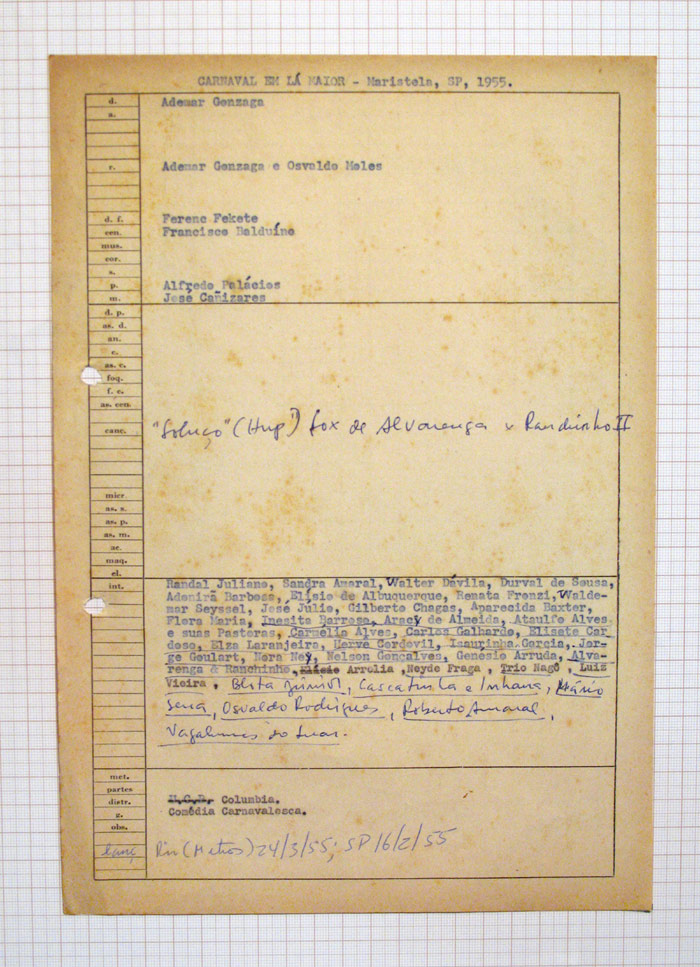 CARNAVAL EM LÁ MAIOR - Maristela, SP, 1955.
d. Ademar Gonzaga
a.
r. Ademar Gonzaga e Osvaldo Moles
d. f. Ferenc Fekete
cen. Francisco Balduíno
mus.
cor.
s.
p. Alfredo Palácios
m. José Cañizares
d. p.
as. d.
an.
c.
as. c.
foq.
f. c.
as. cen.
canc. "Soluço" (Hup!) fox de Alvarenga x Ranchinho II
micr
as. s.
as. p.
as. m.
ac.
maq.
el.
int. Randal Juliano, Sandra Amaral, Walter Dávila, Durval de Sousa,
Adonirã Barbosa, Elísio de Albuquerque, Renata Fronzi, Walde-
mar Seyssel, José Júlio, Gilberto Chagas, Aparecida Baxter,
Flora Maria, Inesita Barroso, Aracy de Almeida, Ataulfo Alves
e suas Pastoras, Carmélia Alves, Carlos Galhardo, Elisete Car
doso, Elza Laranjeira, Hervê Cordovil, Isaurinha Garcia, Jor-
ge Goulart, Nora Ney, Nelson Gonçalves, Genésio Arruda, Alva-
renga & Ranchinho, Arrelia, Neyde Fraga, Trio Nagô, Luiz
Vieira, Blota Júnior, Cascatinha e Inhana, Mário
Sena, Osvaldo Rodrigues, Roberto Amaral,
Vagalumes do Luar.
met.
partes
distr. U.C.B. Columbia.
g. Comédia Carnavalesca.
obs.
lanç Rio (Metros) 24/3/55; SP 16/2/55